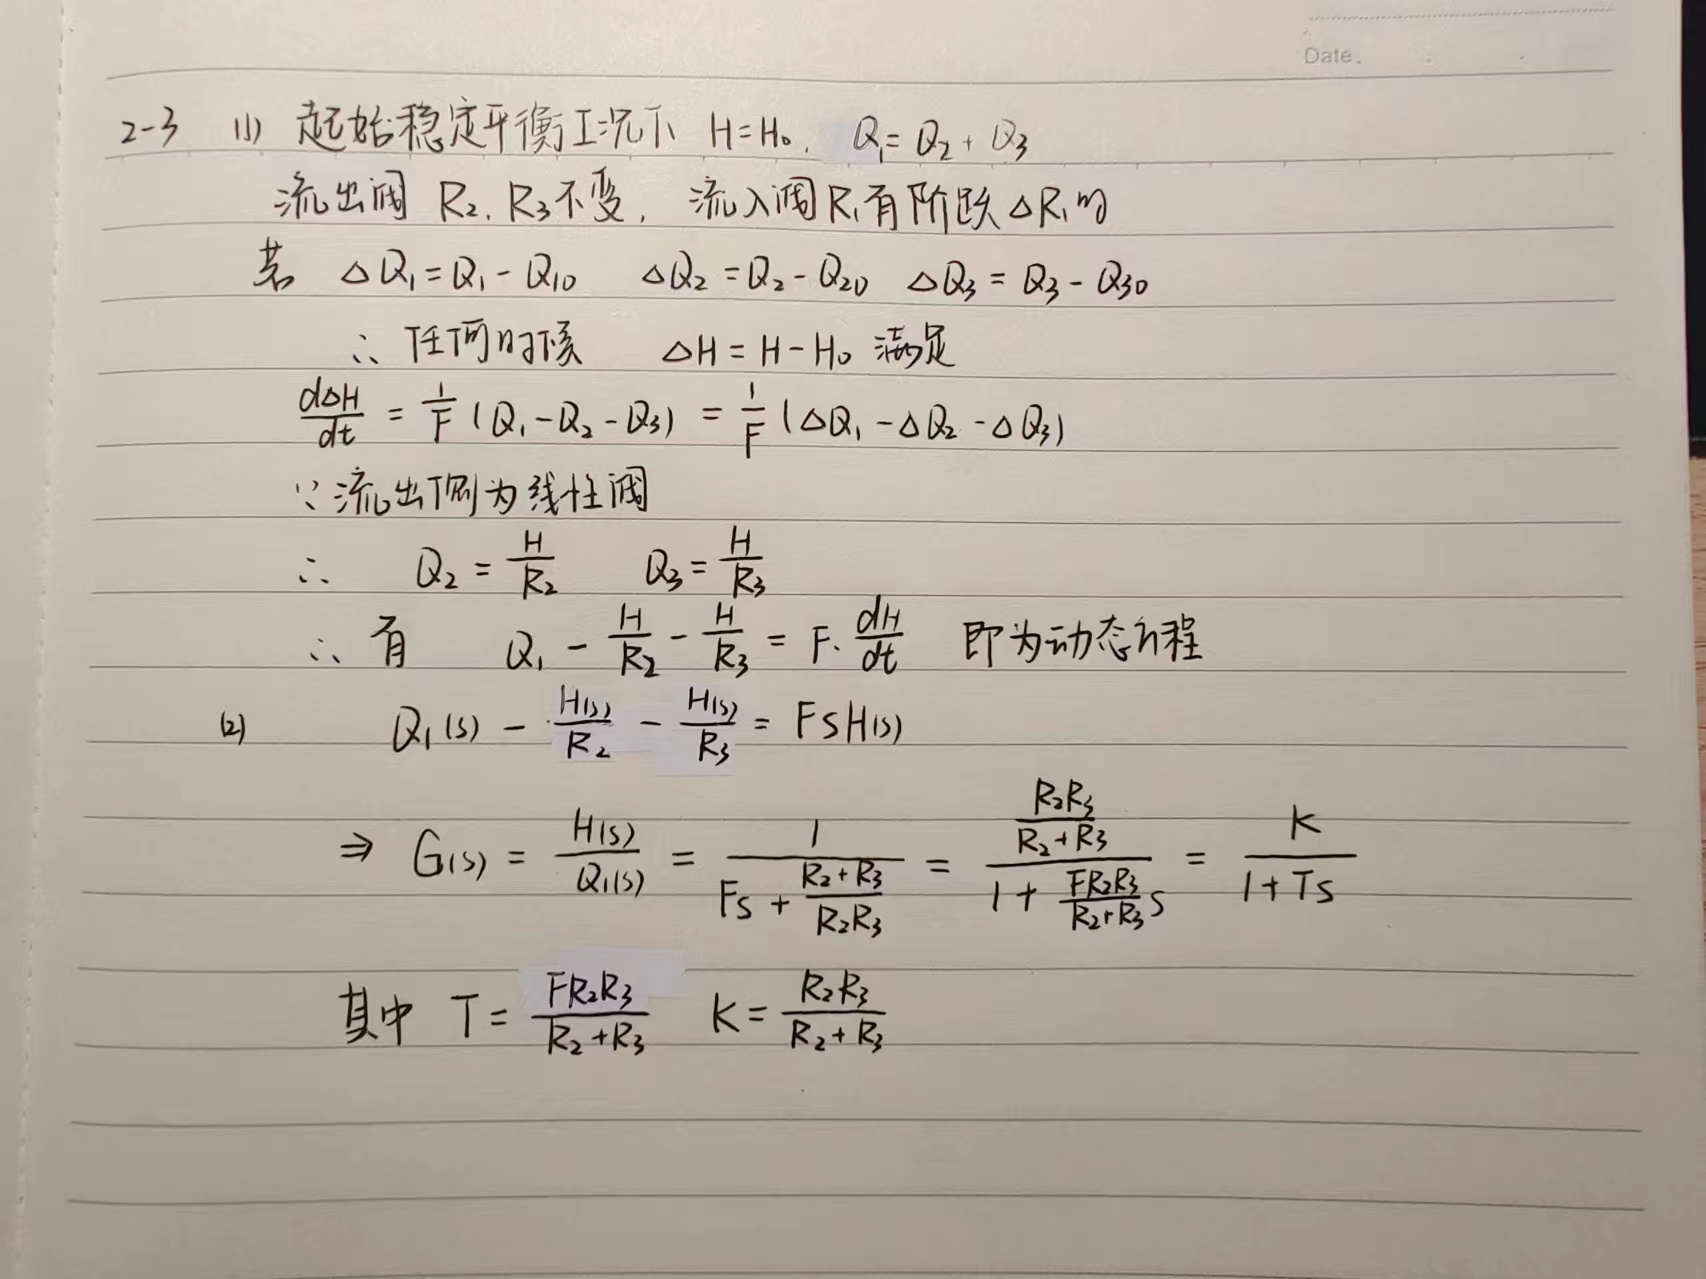 Date.
2-3 (1) 起始稳定平衡工况下 H=H₀. Q₁=Q₂+Q₃
流出阀 R₂. R₃不变, 流入阀R₁有阶跃△R₁时
若 △Q₁=Q₁-Q₁₀ △Q₂=Q₂-Q₂₀ △Q₃=Q₃-Q₃₀
∴ 任何时候 △H=H-H₀ 满足
d△H/dt = 1/F (Q₁-Q₂-Q₃) = 1/F (△Q₁-△Q₂-△Q₃)
∵流出侧为线性阀
∴ Q₂=H/R₂ Q₃=H/R₃
∴有 Q₁ - H/R₂ - H/R₃ = F·dH/dt 即为动态方程
(2) Q₁(s) - H(s)/R₂ - H(s)/R₃ = FSH(s)
⇒ G(s) = H(s)/Q₁(s) = 1/(Fs + (R₂+R₃)/(R₂R₃)) = (R₂R₃/(R₂+R₃))/(1 + (FR₂R₃/(R₂+R₃))s) = K/(1+Ts)
其中 T = FR₂R₃/(R₂+R₃) K = R₂R₃/(R₂+R₃)